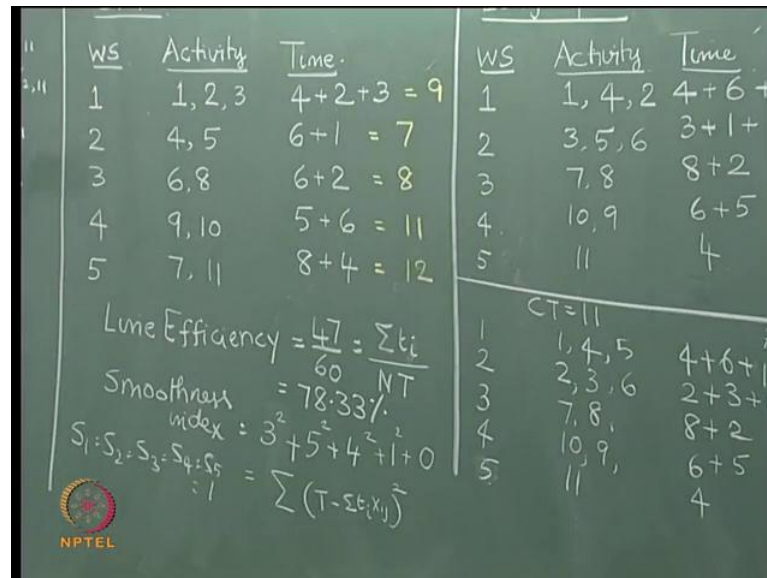 11
2,11
WS Activity Time.
1 1, 2, 3 4+2+3 = 9
2 4, 5 6+1 = 7
3 6,8 6+2 = 8
4 9,10 5+6 = 11
5 7, 11 8+4 = 12
Line Efficiency = 47/60 = Σti/NT
= 78.33%
Smoothness index = 3² + 5² + 4² + 1² + 0
S1 = S2 = S3 = S4 = S5 = 1
= Σ (T - Σti xij)²
WS Activity Time
1 1, 4, 2 4+6+
2 3, 5, 6 3+1+
3 7, 8 8+2
4. 10, 9 6+5
5 11 4
CT = 11
1 1, 4, 5 4+6+1
2 2, 3, 6 2+3+
3 7, 8, 8+2
4 10, 9, 6+5
5. 11 4
NPTEL